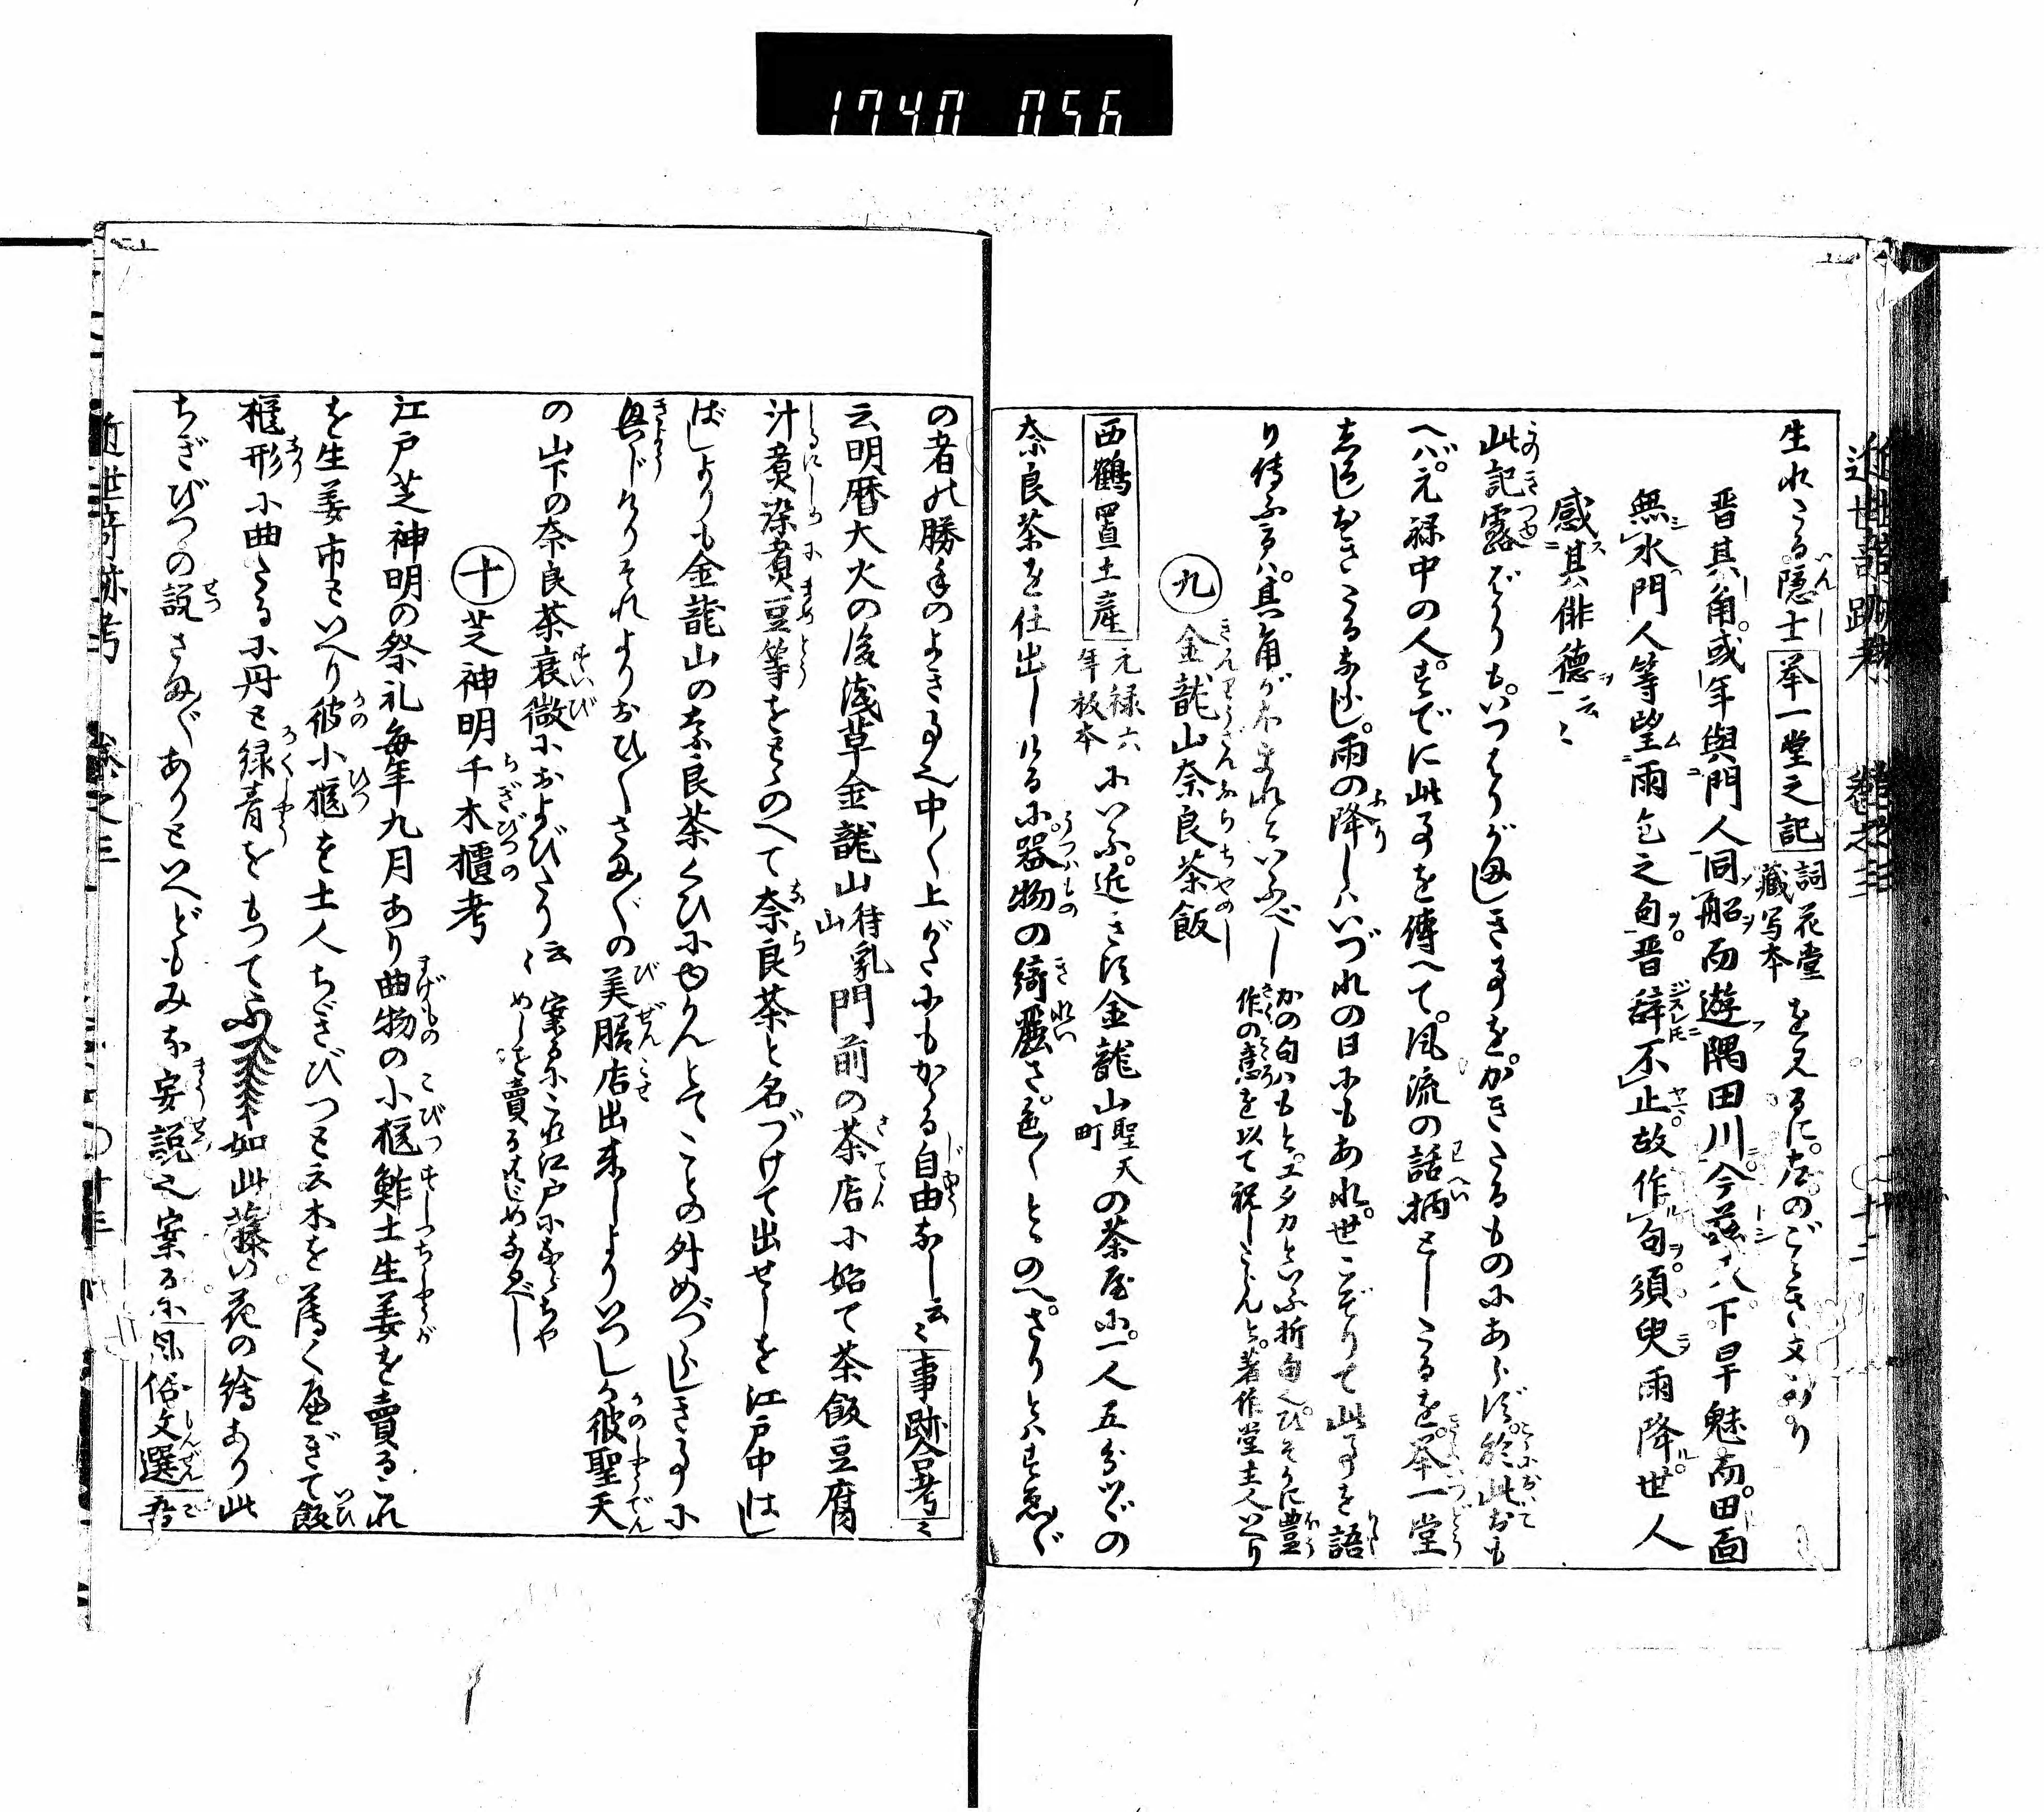 1740 056
生れたる隠士挙一堂之記詞花堂蔵写本を見るに。左のごとき文あり
晋其角。或年與門人同船而遊隅田川。今茲八下旱魃而。田面
無水。門人等望雨乞之句。晋辞不止。故作句。須臾雨降。世人
感其俳徳云々
此記露ばかりも。いつはりがましき事を。かきたるものにあらず。於此おも
へば。元禄中の人。すでに此事を傳へて。風流の話柄としたるを。挙一堂
しるしおきたるなり。雨の降しはいづれの日にもあれ。世こぞりて此事を語
り傳ふるは。其角がほまれといふべし かの句はもと。ユタカといふ折句也。ひそかに豊作の意を以て祝したらんと。著作堂主人いへり
九 金龍山奈良茶飯
西鶴置土産 元禄六年板本 にいふ。近き頃金龍山聖天町の茶屋に。一人五分づゝの
奈良茶を仕出しけるに。器物の綺麗さ。色々とゝのへ。さりとはすゑ〴〵
の者の勝手のよき事也中々上がたにもかゝる自由なし云々 事跡合考ニ
云明暦大火の後浅草金龍山待乳山門前の茶店に始て茶飯豆腐
汁煮染煮豆等をとゝのへて奈良茶と名づけて出せしを江戸中はし
ばしよりも金龍山の奈良茶くひにゆかんとてことの外めづらしき事に
興じけりそれよりおひ〳〵さま〴〵の美膳店出来しよりいつしか彼聖天
の山下の奈良茶衰微におよびたり云々 案るにこれ江戸にならちやめしを賣るはじめなるべし
十 芝神明千木櫃考
江戸芝神明の祭礼毎年九月あり曲物の小櫃鮓土生姜を賣るこれ
を生姜市といへり彼小櫃を土人ちぎびつと云木を薄くへぎて飯
櫃形に曲たるに丹と緑青をもつて如此藤の花の繪あり此
ちぎびつの説さま〴〵ありといへどもみな妄説也案るに風俗文選
近世奇跡考 巻之三 〇十三